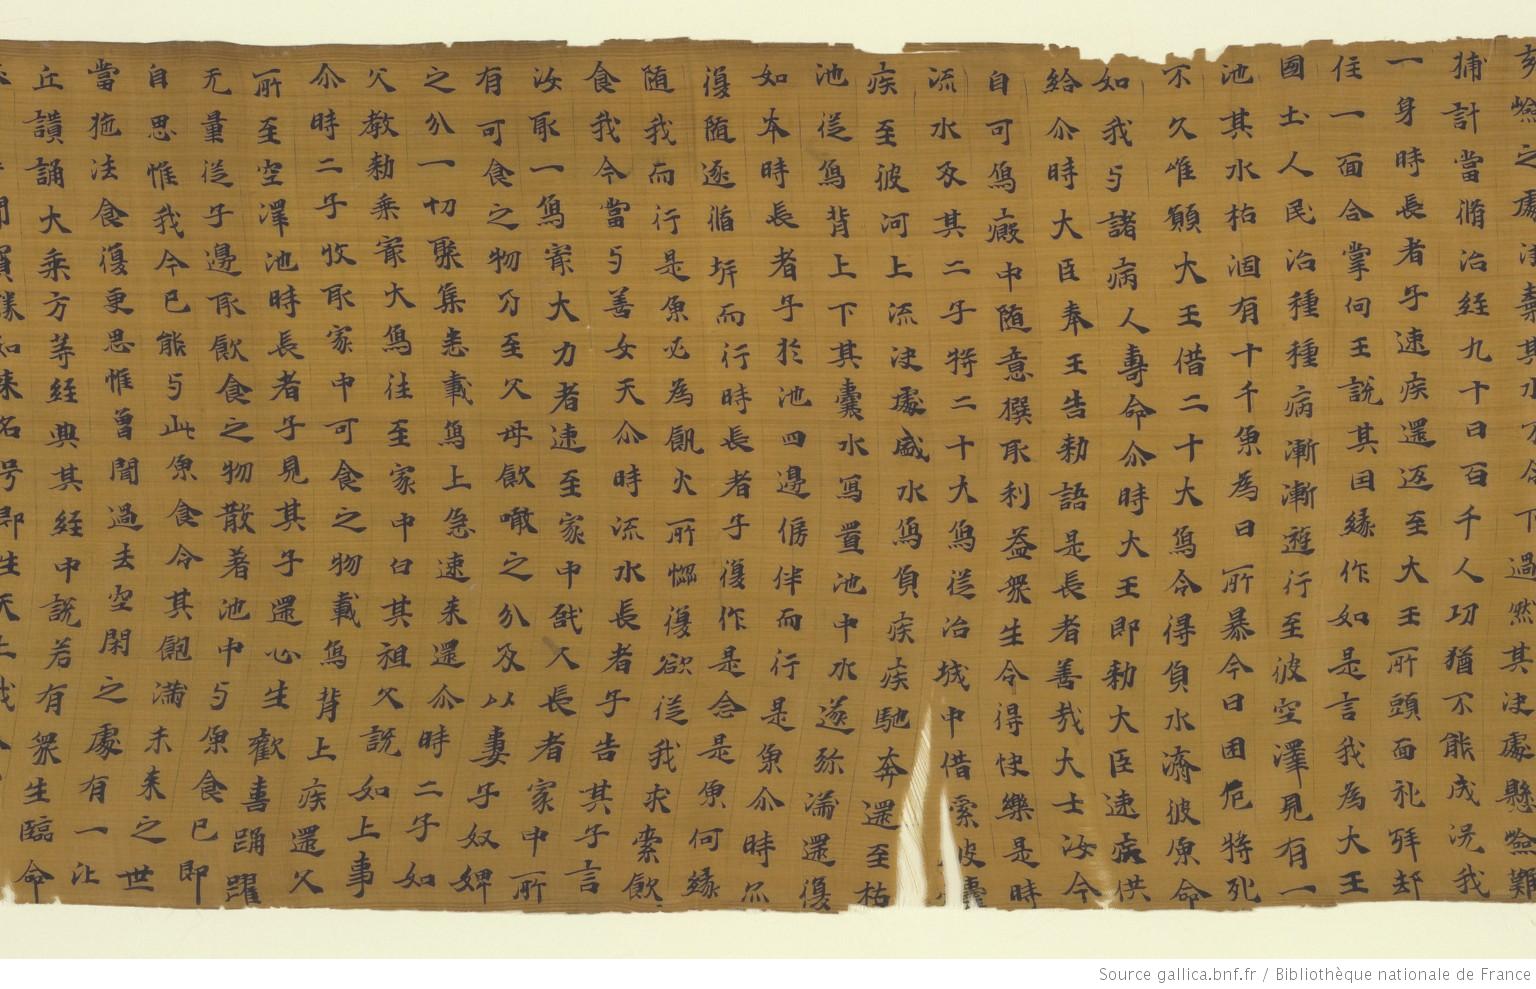 嶮之處棄其水不令下過然其決處懸嶮難
捕計當脩治經九十日百千人功猶不能成況我
一身時長者子速疾還返至大王所頭面礼拜却
住一面合掌向王說其因緣作如是言我為大王
國土人民治種種病漸漸遊行至彼空澤見有一
池其水枯涸有十千魚為日所暴今日困厄將死
不久唯願大王借二十大象令得負水濟彼魚命
如我与諸病人壽命尒時大王即勑大臣速疾供
給尒時大臣奉王告勑語是長者善哉大士汝今
自可象廄中隨意撰取利益衆生令得快樂是時
流水及其二子將二十大象從治城中借索皮囊
疾至彼河上流決處盛水象負疾疾馳奔還至枯
池從象背上下其囊水寫置池中水遂弥滿還復
如本時長者子於池四邊傍佯而行是魚尒時亦
復隨逐循坼而行時長者子復作是念是魚何緣
隨我而行是魚必為飢火所惱復欲從我求索飲
食我今當与善女天尒時流水長者子告其子言
汝取一象冣大力者速至家中啟父長者家中所
有可食之物乃至父母飲噉之分及以妻子奴婢
之分一切聚集悉載象上急速来還尒時二子如
父教勑乘冣大象往至家中白其祖父說如上事
尒時二子收取家中可食之物載象背上疾還父
所至空澤池時長者子見其子還心生歡喜踊躍
无量從子邊取飲食之物散著池中与魚食已即
自思惟我今已能与此魚食令其飽滿未来之世
當施法食復更思惟曽聞過去空閑之處有一比
丘讀誦大乘方等經典其經中說若有衆生臨命
聞寶勝如来名号即生天上我今
Source gallica.bnf.fr / Bibliothèque nationale de France